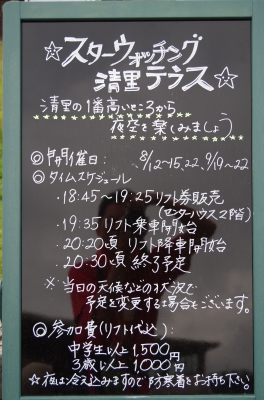 ☆スターウォッチング
清里テラス☆
清里の1番高いところから
夜空を楽しみましょう
◎開催日: 8/12~15.22, 9/19~22
◎タイムスケジュール
・18:45~19:25 リフト券販売
(センターハウス2階)
・19:35 リフト乗車開始
・20:20頃 リフト降車開始
・20:30頃 終了予定
※当日の天候などの状況で
予定を変更する場合もございます。
◎参加費(リフト代込):
中学生以上 1,500円
3歳以上 1,000円
☆夜は冷え込みますので防寒着をお持ち下さい。